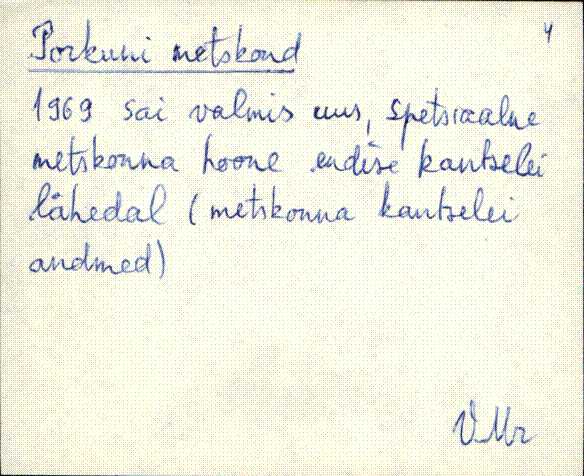 4
Porkuni metskond
1969 sai valmis uus, spetsiaalne
metskonna hoone endise kantselei
lähedal (metskonna kantselei
andmed)
V.Mr